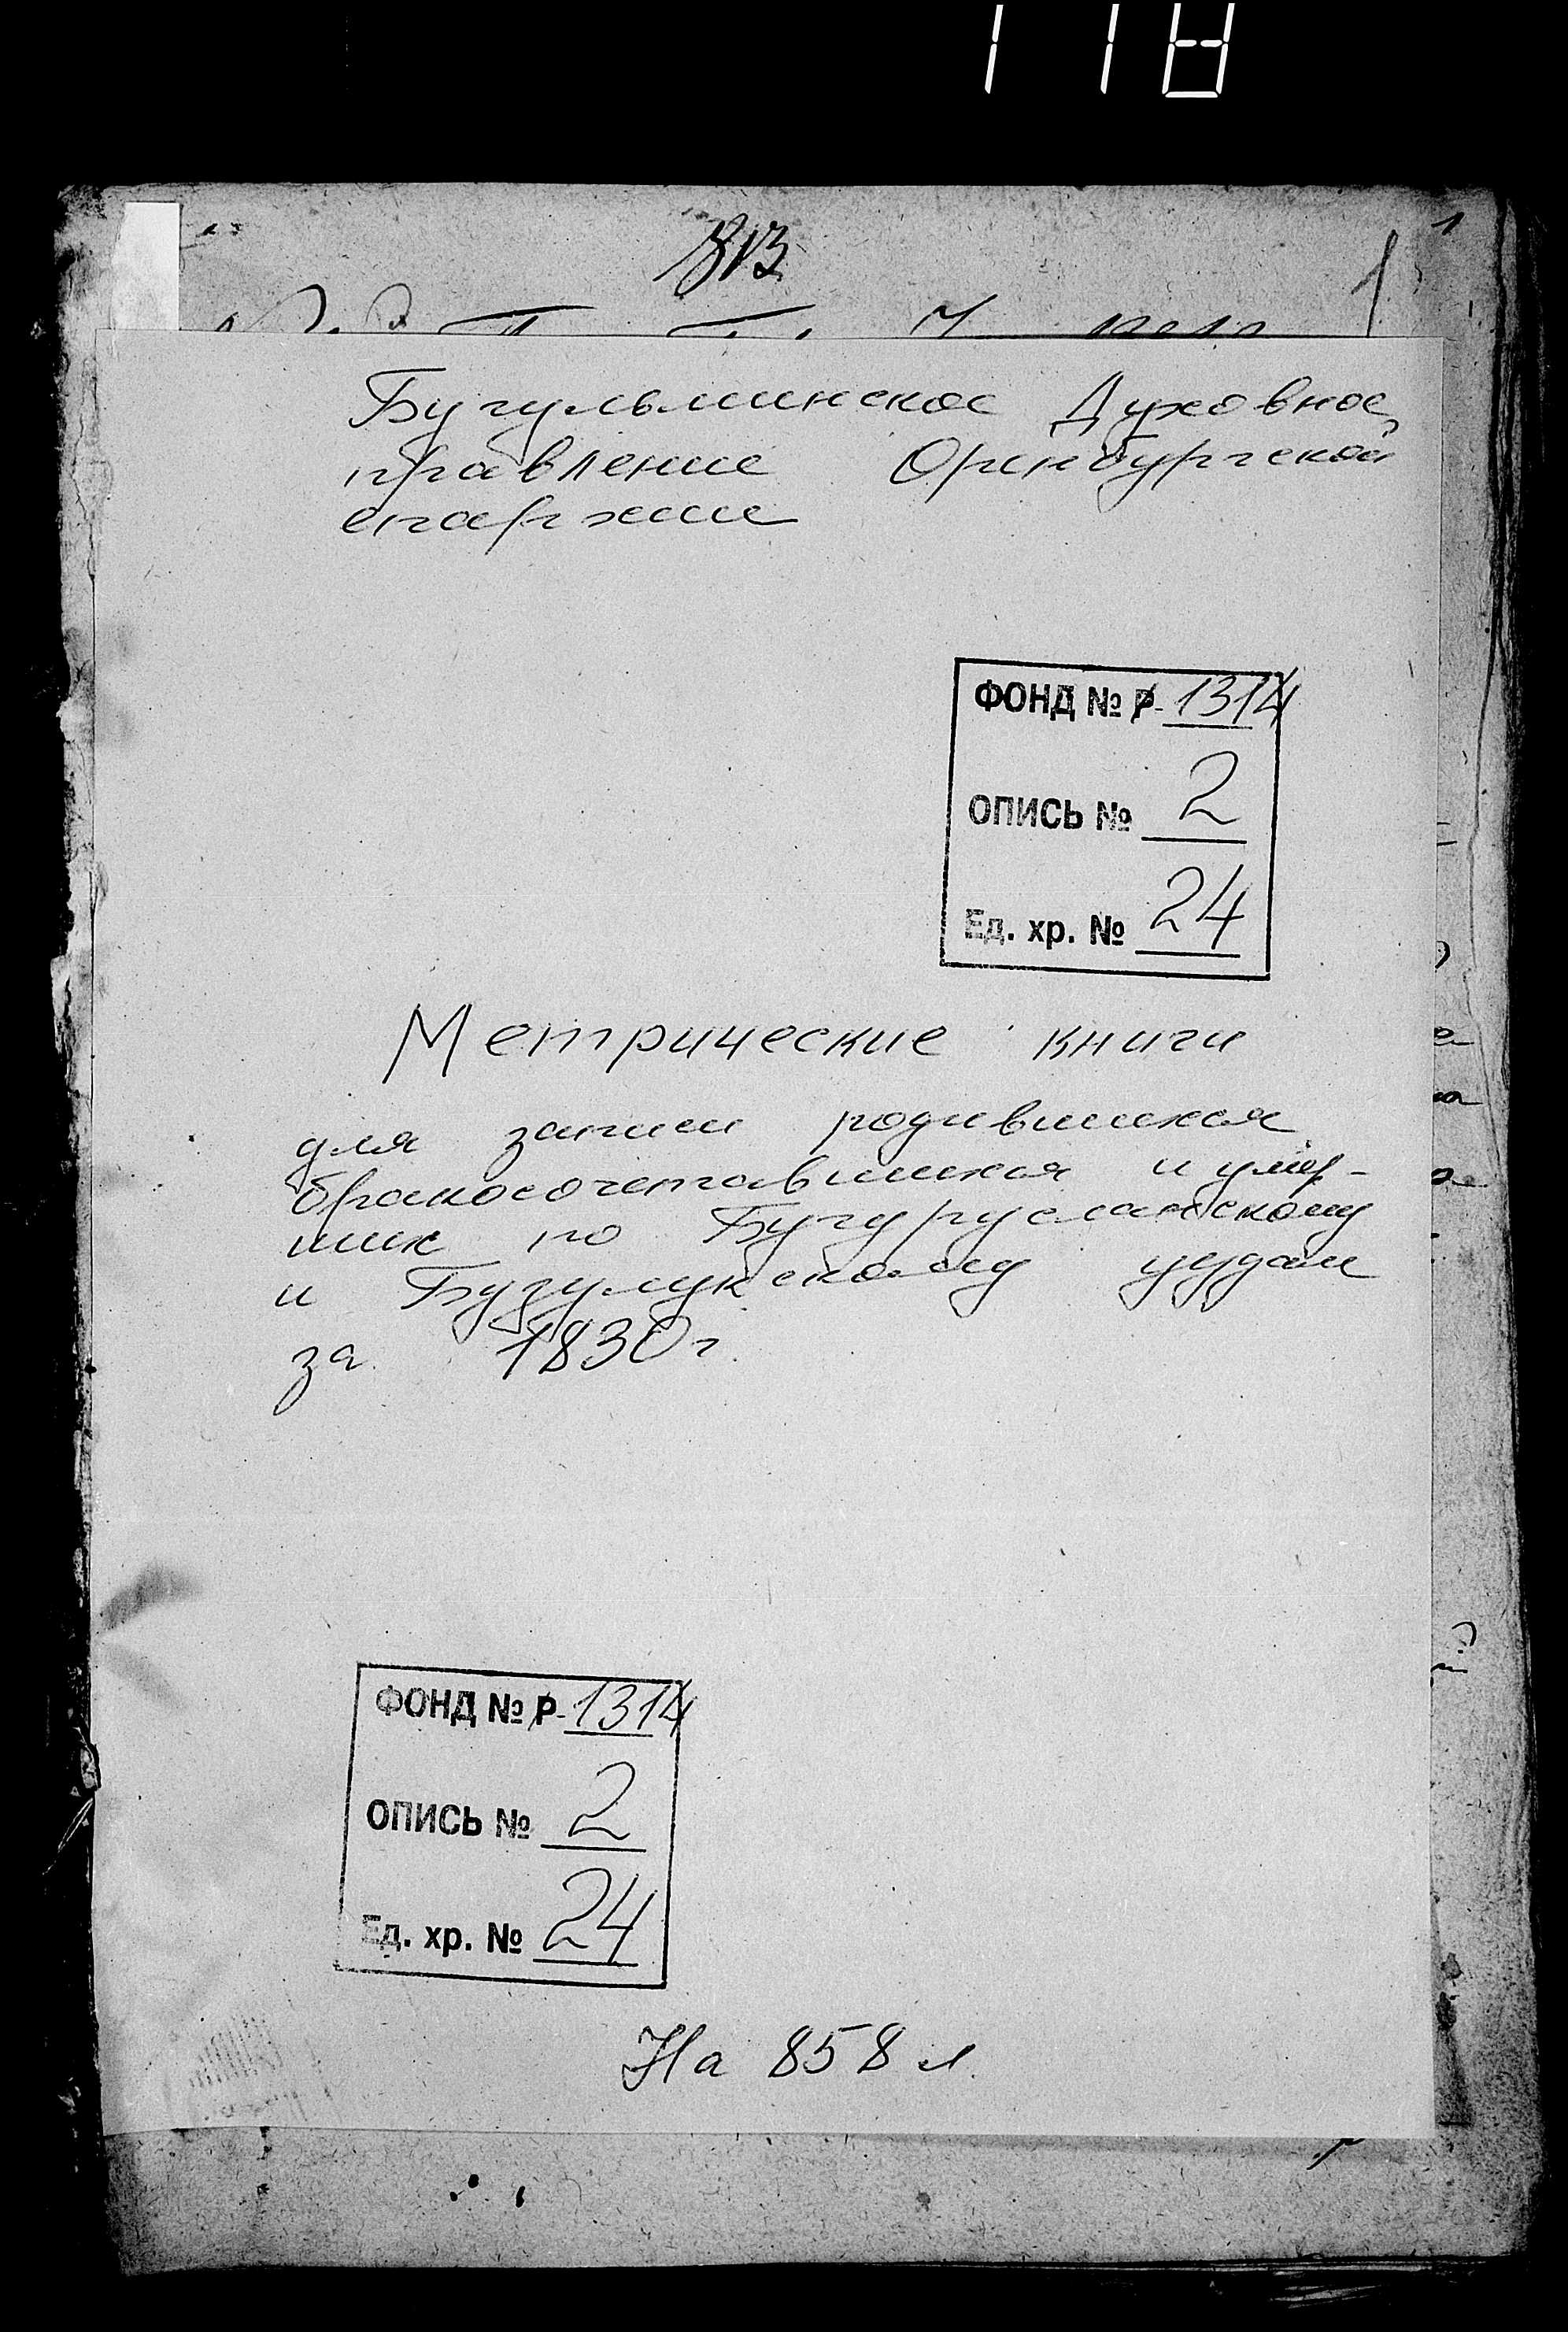 118
813
1
1
Бугульминское Духовное
правление Оренбургской
епархии
ФОНД № Р-1314
ОПИСЬ № 2
Ед. хр. № 24
Метрические книги
для записи родившихся
бракосочетавшихся и умер-
ших по Бугурусланскому
и Бузулукскому уездам
за 1830 г.
ФОНД № Р-1314
ОПИСЬ № 2
Ед. хр. № 24
На 858 л.